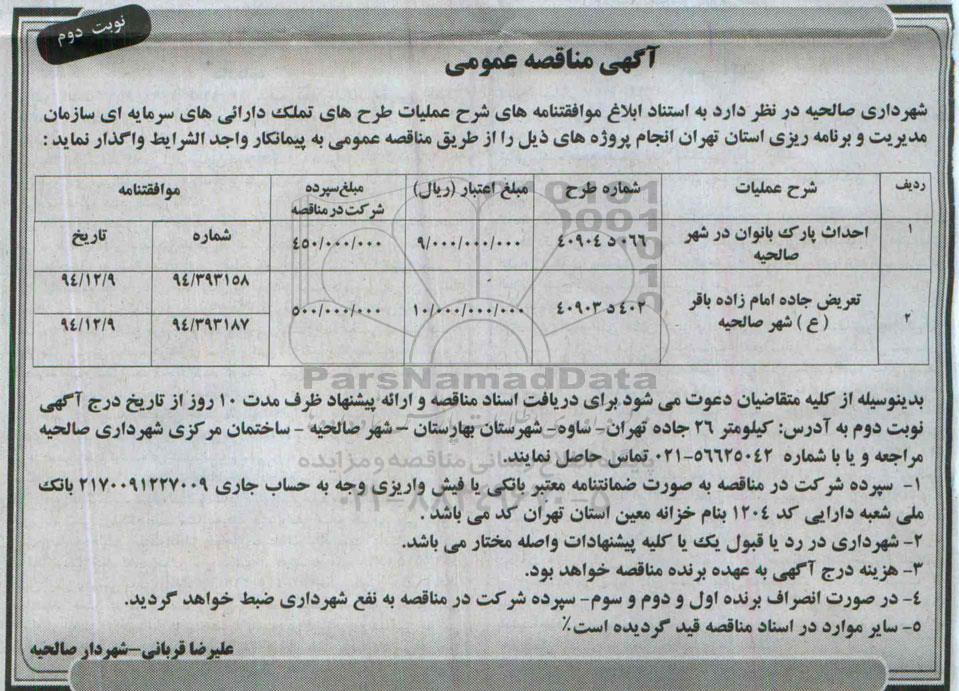 نوبت دوم
آگهی مناقصه عمومی
شهرداری صالحیه در نظر دارد به استناد ابلاغ موافقتنامه های شرح عملیات طرح های تملک دارائی های سرمایه ای سازمان
مدیریت و برنامه ریزی استان تهران انجام پروژه های ذیل را از طریق مناقصه عمومی به پیمانکار واجد الشرایط واگذار نماید :
ردیف شرح عملیات شماره طرح مبلغ اعتبار (ریال) مبلغ سپرده شرکت در مناقصه موافقتنامه
شماره تاریخ
۱ احداث پارک بانوان در شهر صالحیه ۰۶۶ د ۴۰۹۰۴ ۹/۰۰۰/۰۰۰/۰۰۰ ۴۵۰/۰۰۰/۰۰۰
۹۴/۳۹۳۱۵۸ ۹۴/۱۲/۹
۲ تعریض جاده امام زاده باقر (ع) شهر صالحیه ۴۰۲ د ۴۰۹۰۳ ۱۰/۰۰۰/۰۰۰/۰۰۰ ۵۰۰/۰۰۰/۰۰۰
۹۴/۳۹۳۱۸۷ ۹۴/۱۲/۹
ParsNamadData
بدینوسیله از کلیه متقاضیان دعوت می شود برای دریافت اسناد مناقصه و ارائه پیشنهاد ظرف مدت ۱۰ روز از تاریخ درج آگهی
نوبت دوم به آدرس: کیلومتر ۲۶ جاده تهران- ساوه- شهرستان بهارستان – شهر صالحیه - ساختمان مرکزی شهرداری صالحیه
مراجعه و یا با شماره ۵۶۶۲۵۰۴۲-۰۲۱ تماس حاصل نمایند.
پایگاه اطلاع رسانی مناقصه و مزایده
۱- سپرده شرکت در مناقصه به صورت ضمانتنامه معتبر بانکی یا فیش واریزی وجه به حساب جاری ۲۱۷۰۰۹۱۲۲۷۰۰۹ بانک
ملی شعبه دارایی کد ۱۲۰۴ بنام خزانه معین استان تهران کد می باشد .
۲- شهرداری در رد یا قبول یک یا کلیه پیشنهادات واصله مختار می باشد.
۳- هزینه درج آگهی به عهده برنده مناقصه خواهد بود.
۴- در صورت انصراف برنده اول و دوم و سوم- سپرده شرکت در مناقصه به نفع شهرداری ضبط خواهد گردید.
۵- سایر موارد در اسناد مناقصه قید گردیده است٪
علیرضا قربانی-شهردار صالحیه